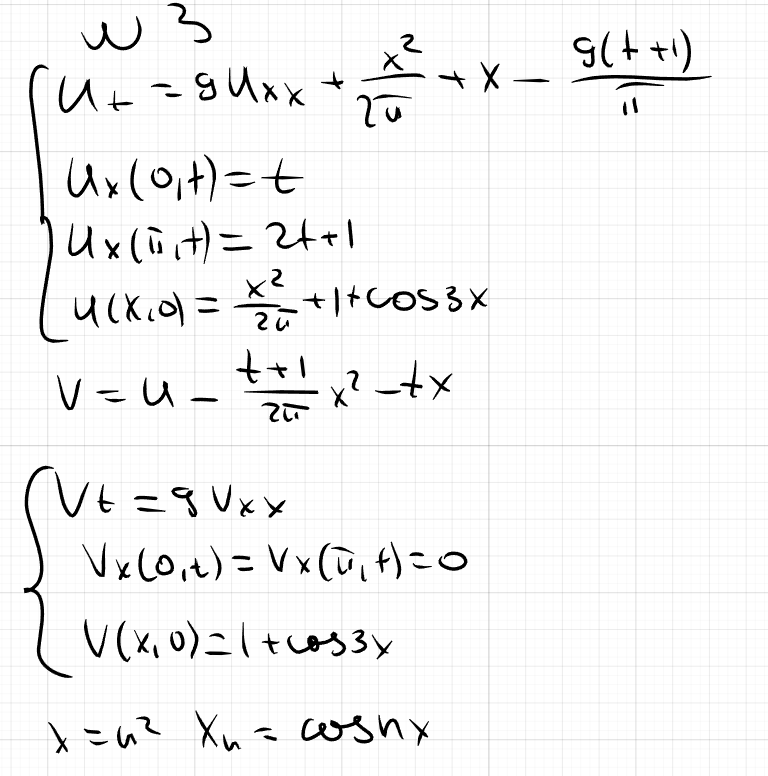 N 3
u_t = 9 u_xx + x²/2π + x − 9(t+1)/π
u_x(0,t) = t
u_x(π,t) = 2t+1
u(x,0) = x²/2π + 1 + cos3x
v = u − t+1/2π x² − tx
v_t = 9 v_xx
v_x(0,t) = v_x(π,t) = 0
v(x,0) = 1 + cos3x
λ = n² X_n = cosnx